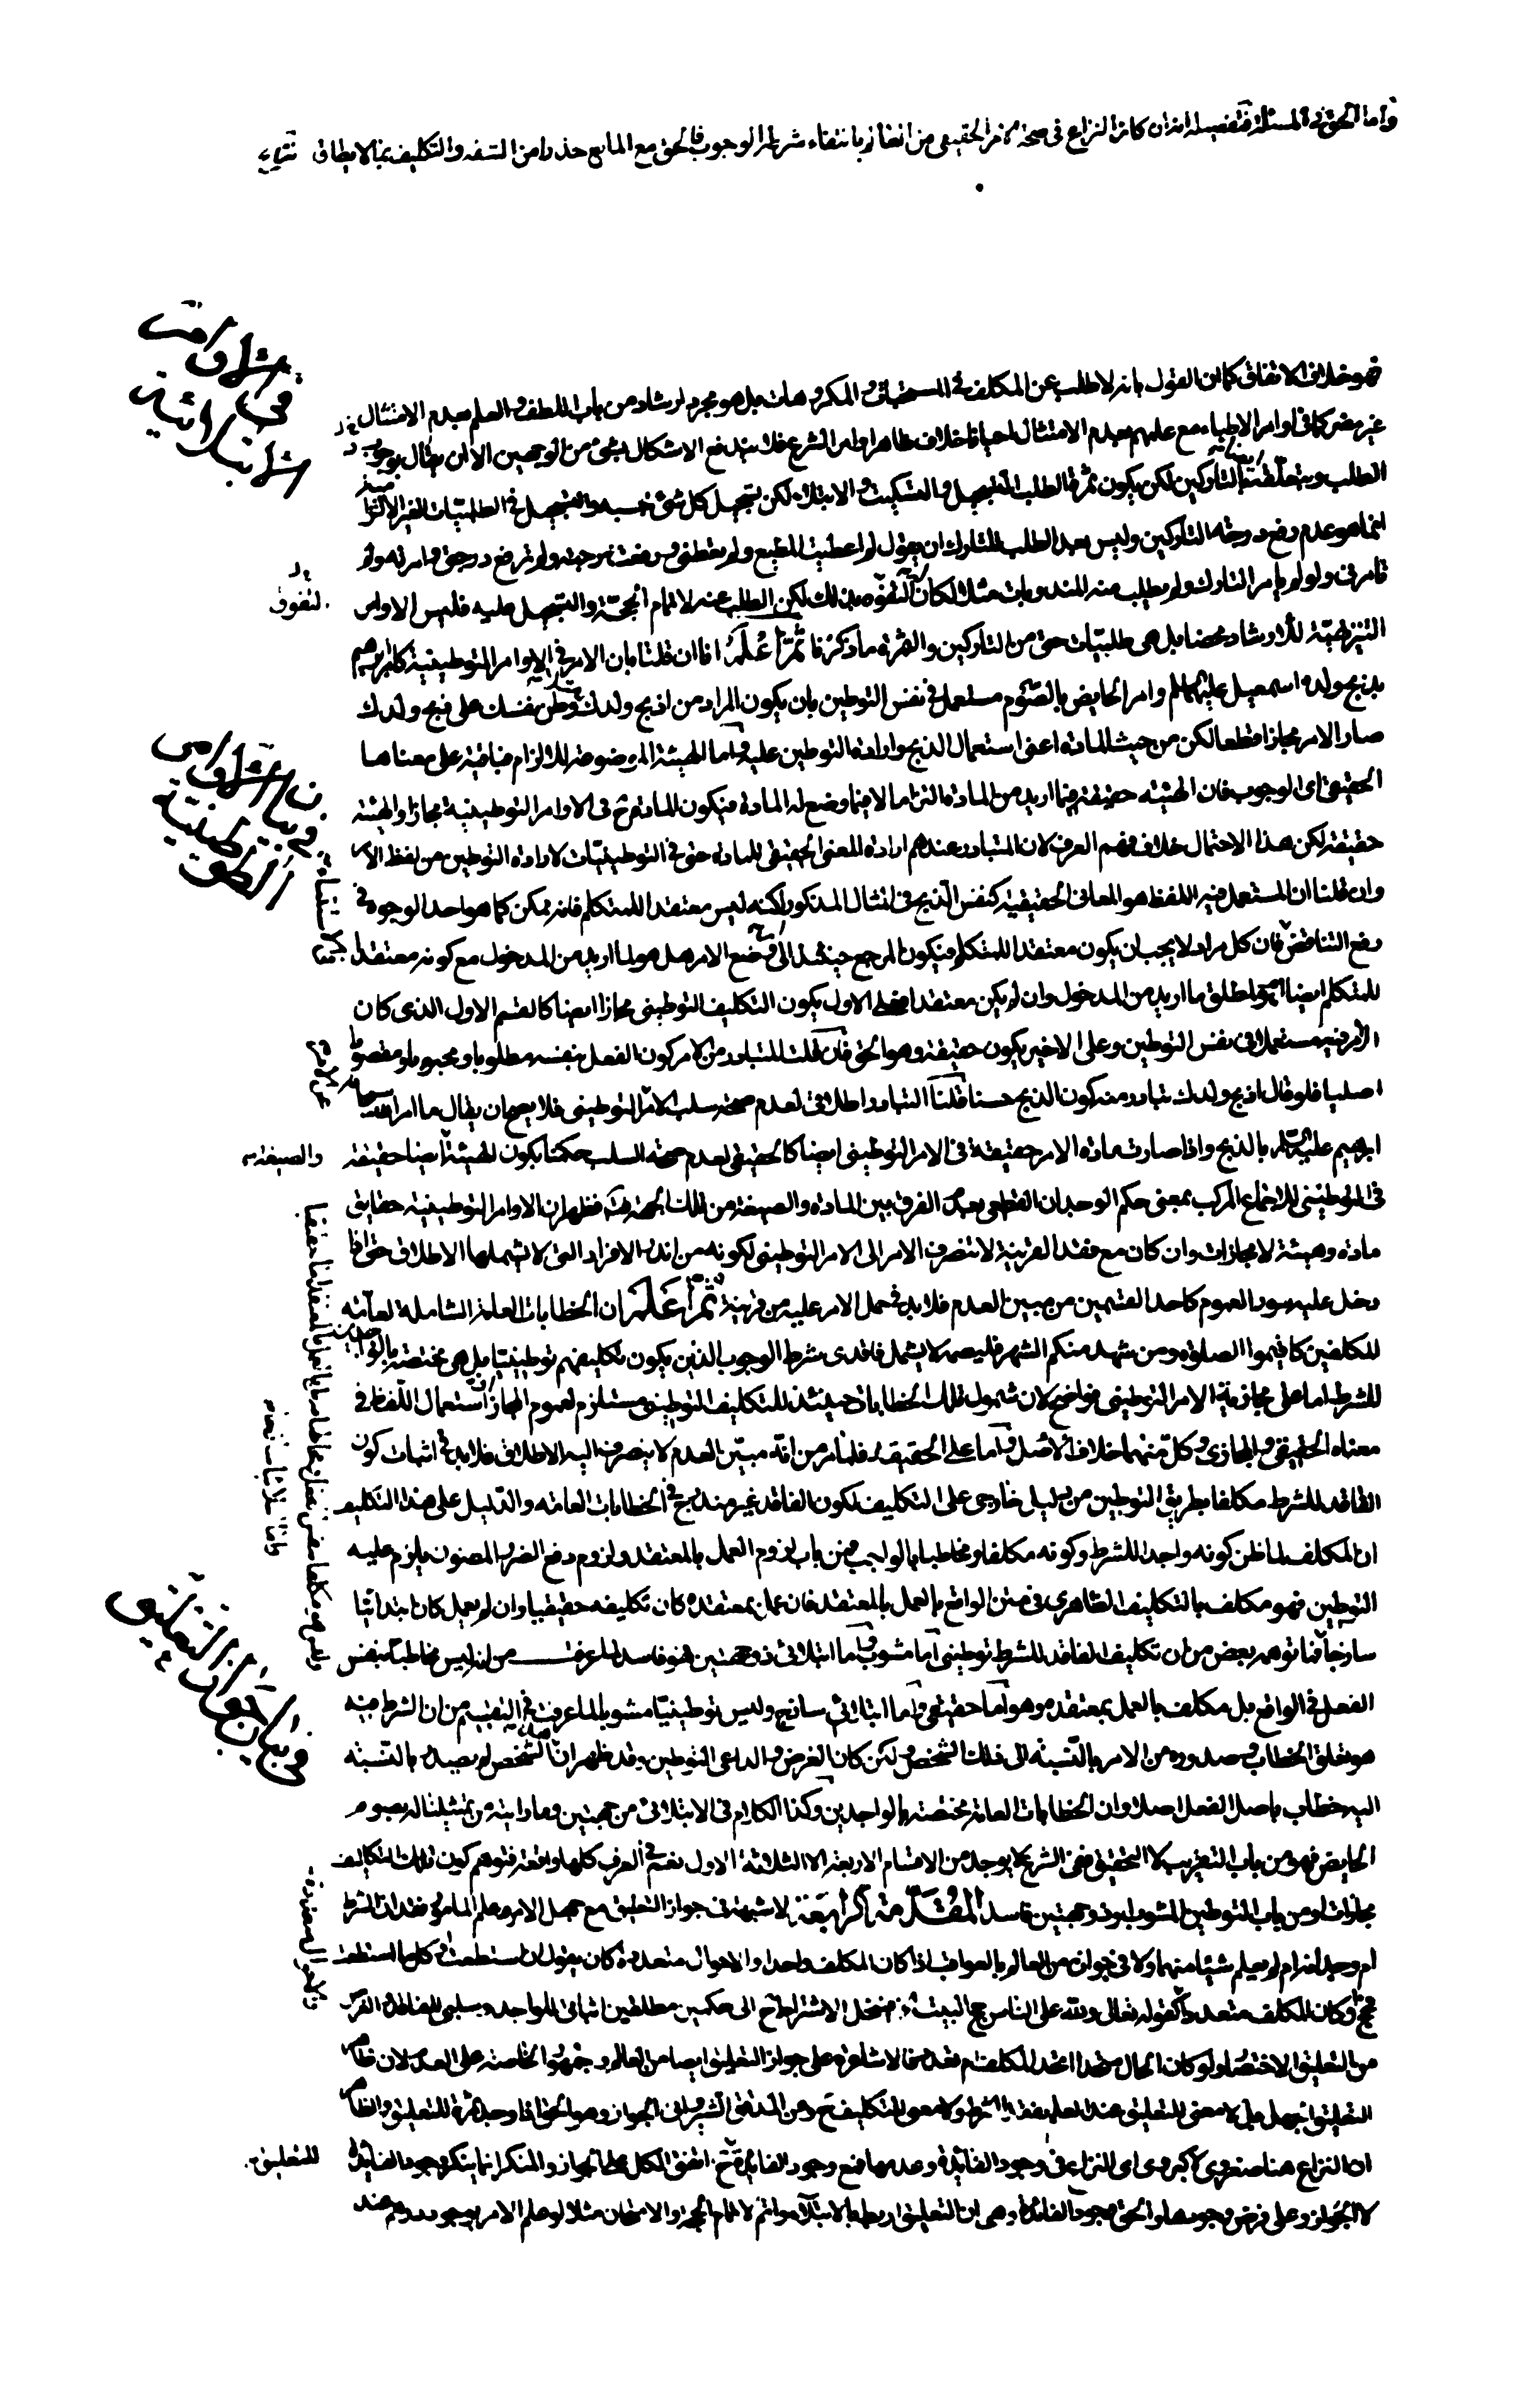 واما الحق في المسئلة فتفصيله انه ان كان النزاع في صحة الامر الحقيقي من انفاذه بانتفاء شرط الوجوب فالحق مع المانع حذرا من السفه والتكليف بما لا يطاق
فهو خلاف الاتفاق كما ان القول بانه لا طلب عن المكلف في المستحبات والمكروهات بل هو مجرد ارشاد من باب اللطف والعلم بعدم الامتثال
غير مضر كما في اوامر الاطباء مع علمهم بعدم الامتثال احيانا خلاف ظاهر اوامر الشرع فلا يندفع الاشكال بشئ من الوجهين الا ان يقال بوجود
الطلب وتعلقه بالتاركين لكن يكون ثمرة الطلب التعجيل والتسكيت والابتلاء لكن تعجيل كل شئ بحسبه والتعجيل في الطلبيات الغير الالزامية
انما هو عدم رفع درجة التاركين وليس بعد الطلب للتارك ان يقول لم اعطيت المطيع ولم تعطني ورفعت درجته ولم ترفع درجتي وامرته ولم
تامرني ولو لم يامر التارك ولم يطلب منه المندوبات مثلا لكان التفوه بذلك لكن الطلب عنه لاتمام الحجة والتعجيل عليه فليس الاوامر
لتفوق
التنزيهية للارشاد محضا بل هي طلبيات حتى من التاركين والثمرة ما ذكرنا ثم اعلم انا ان قلنا بان الامر في الاوامر التوطينية كابراهيم
بذبح ولده اسمعيل عليهما السلام وامر الحايض بالصوم مستعمل في نفس التوطين بان يكون المراد من اذبح ولدك وطن نفسك على ذبح ولدك
صار الامر مجازا قطعا لكن من حيث المادة اعنى استعمال الذبح وارادة التوطين عليه واما الهيئة الموضوعة للالزام فباقية على معناها
الحقيقي اي الوجوب فان الهيئة حقيقة فيما اريد من المادة التزاما لا فيما وضع له المادة فيكون المادة في الاوامر التوطينية مجازا والهيئة
حقيقة لكن هذا الاحتمال خلاف فهم العرف لان المتبادر عندهم ارادة المعنى الحقيقي للمادة حتى في التوطينيات لا ارادة التوطين من لفظ الامر
وان قلنا ان المستعمل فيه اللفظ هو المعاني الحقيقية كنفس الذبح في المثال المذكور لكنه ليس معتقد المتكلم فانه ممكن كما هو احد الوجوه في
رفع التناقض فان كل مراد لا يجب ان يكون معتقدا للمتكلم فيكون المرجع حينئذ الى وضع الامر هل هو لما اريد من المدخول مع كونه معتقدا
للمتكلم ايضا ام مطلق ما اريد من المدخول وان لم يكن معتقدا فعلى الاول يكون التكليف التوطيني مجازا ايضا كالقسم الاول الذي كان
الامر فيه مستعملا في نفس التوطين وعلى الاخير يكون حقيقة وهو الحق فان قلت المتبادر من الامر كون الفعل بنفسه مطلوبا ومحبوبا ومقصودا
اصليا فلو قال اذبح ولدك يتبادر منه كون الذبح حسنا قلنا التبادر اطلاقي لعدم صحة سلب الامر التوطيني فلا يصح ان يقال ما امر الله
ابراهيم عليه السلام بالذبح واذا صارت مادة الامر حقيقة في الامر التوطيني ايضا كالحقيقي لعدم صحة السلب حكمنا بكون الهيئة ايضا حقيقة
والصيغة
في التوطيني للاجماع المركب بمعنى حكم الوجدان القطعي بعدم الفرق بين المادة والصيغة من تلك الجهة فظهر ان الاوامر التوطينية حقايق
مادة وهيئة لا مجازات وان كان مع فقد القرينة لا تنصرف الامر الى الامر التوطيني لكونه من اندر الافراد التي لا يشملها الاطلاق حتى اذا
دخل عليه سور العموم كاحد القسمين من مبين العدم فلا بد في حمل الامر عليه من قرينة ثم اعلم ان الخطابات العامة الشاملة لعامة
المكلفين كاقيموا الصلوة ومن شهد منكم الشهر فليصمه لا يشمل فاقدي شرط الوجوب الذين يكون تكليفهم توطينيا بل هي مختصة بالواجدين
للشرط اما على مجازية الامر التوطيني فواضح لان شمول تلك الخطابات حينئذ للتكليف التوطيني مستلزم لعموم المجاز او استعمال اللفظ في
معناه الحقيقي والمجازي وكل منهما خلاف الاصل واما على الحقيقة فلما مر من انه مبين العدم لا ينصرف اليه الاطلاق فلا بد في اثبات كون
الفاقد للشرط مكلفا بطريق التوطين من دليل خارجي على التكليف لكون الفاقد غير مندرج في الخطابات العامة والدليل على هذا التكليف
ان المكلف لما ظن كونه واجدا للشرط وكونه مكلفا ومخاطبا بالواجب فمن باب لزوم العمل بالمعتقد ولزوم دفع الضرر المظنون يلزم عليه
التوطين فهو مكلف بالتكليف الظاهري في متن الواقع بالعمل بالمعتقد فان عمل بمعتقده كان تكليفه حقيقيا وان لم يعمل كان ابتلائيا
ساذجا فما توهمه بعض من ان تكليف الفاقد للشرط توطيني اما مشوب واما ابتلائي ذو جهتين فهو فاسد لما عرفت من انه ليس مخاطبا بنفس
الفعل في الواقع بل مكلف بالعمل بمعتقده وهو اما حقيقي واما ابتلائي ساذج وليس توطينيا مشوبا لما عرفت في التقسيم من ان الشرط فيه
هو تعلق الخطاب وصدوره من الامر بالنسبة الى ذلك الشخص ولكن كان الغرض والداعي التوطين وقد ظهر ان الشخص لم يصدر بالنسبة
اليه خطاب باصل الفعل اصلا وان الخطابات العامة مختصة بالواجدين وكذا الكلام في الابتلائي من جهتين وما رايته من تمثيلنا له بصوم
الحايض فهو من باب التقريب لا التحقيق ففي الشرع لا يوجد من الاقسام الاربعة الا الثلاثة الاول نعم في العرف كلها واقعة فتوهم كون تلك التكاليف
مجازات او من باب التوطين المشوب او ذو جهتين فاسد المقدمة الرابعة لا شبهة في جواز التعليق مع جهل الامر وعلم المامور بفقدان الشرط
ام وجوده ام لم يعلم شيئا منهما ولا في جوازه من العالم بالعواقب اذا كان المكلف واحدا والاحوال متعددة كان يقول ان استطعت او كلما استطعت
فحج او كان المكلف متعددا كقوله تعالى ولله على الناس حج البيت فينحل الاشتراط الى حكمين مطلقين اثباتي للواجد وسلبي للفاقد
من التعليق الاختصار ولو كان الحال متحدا اتحد المكلف ام تعدد فالاشاعرة على جواز التعليق ايضا من العالم وجمهور الخاصة على العدم لان ظاهر
التعليق الجهل بل لا معنى للتعليق عند العلم بفقد الشرط ولا معنى للتكليف ح وعن المدقق الشيرواني الجواز وهو الحق اذا وجد ثمرة للتعليق والظاهر
ان النزاع هنا صغروي لا كبروي اي النزاع في وجود الفائدة وعدمها فمع وجود الفائدة ح اتفق الكل على الجواز والمنكر انما ينكر وجود الفائدة
للتعليق
لا الجواز وعلى فرض وجودها والحق وجود الفائدة وهي ان التعليق اربط بالابتلاء واتم لاتمام الحجة والامتحان مثلا لو علم الامر بوجود درهم عند